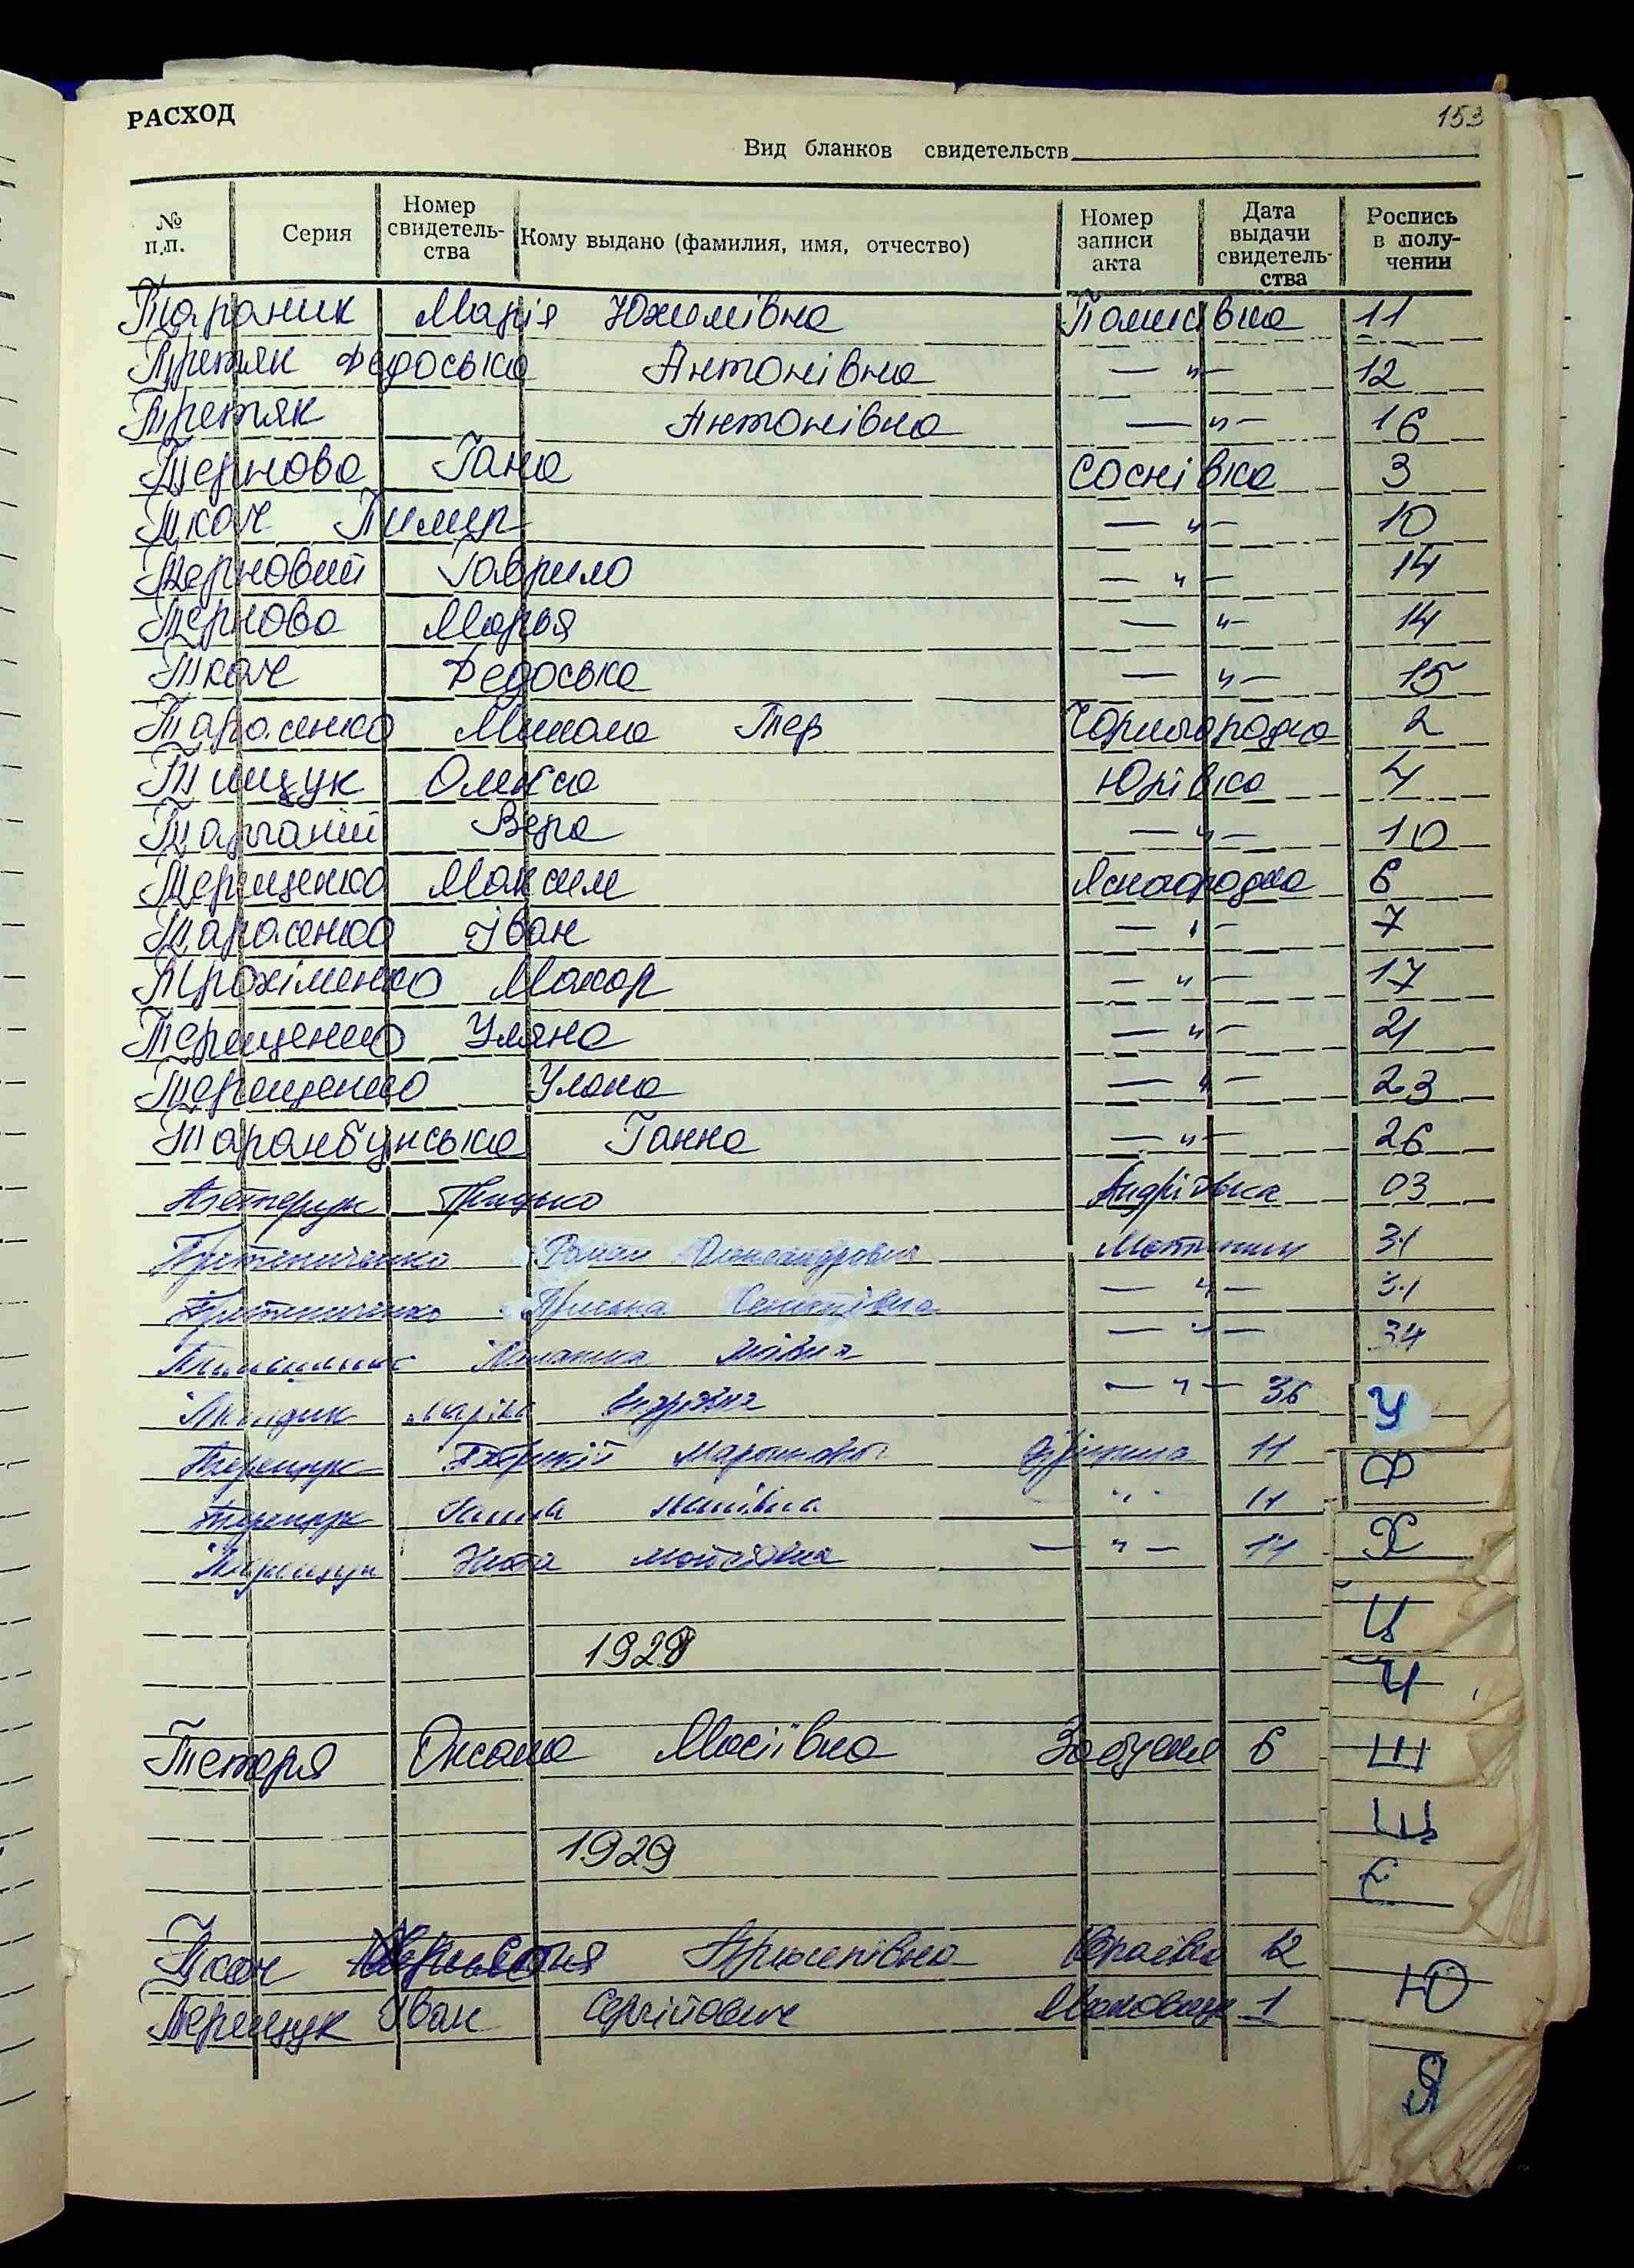 РАСХОД
153
Вид бланков свидетельств
№ п.п. Серия Номер свидетель-ства Кому выдано (фамилия, имя, отчество) Номер записи акта Дата выдачи свидетель-ства Роспись в полу-чении
Тараник Марія Юхимівна 11
Третяк Федоська Антонівна — " — 12
Третяк Антонівна — " — 16
Тернова Гана Соснівка 3
Ткач Тимур — " — 10
Терновий Гаврило — " — 14
Тернова Марья — " — 14
Ткач Федоська — " — 15
Тарасенко Микола Тер Чорногородка 2
Тищук Олекса Юрівка 4
Таргоній Вера — " — 10
Терещенко Максим Ясногородка 6
Тарасенко Іван — " — 7
Трохіменко Макар — " — 17
Терещенко Уляна — " — 21
Терещенко Уляна — " — 23
Таранбунська Ганна — " — 26
Грицько Андріївка 03
Роман Олександрович Мотижин 31
Пріська — " — 31
— " — 34
Марія Андріївна — " — 36 У
Терещук 11 Ф
Терещук Ганна Іванівна " 11
Терещук Мойсеївна — " — 14 Х
Ц
1928
Ч
Тетеря Оксана Мосіївна Забуяння 6 Ш
Щ
1929
Є
Ткач 12
Ю
Терещук Іван Сергійович Маковище 1
Я